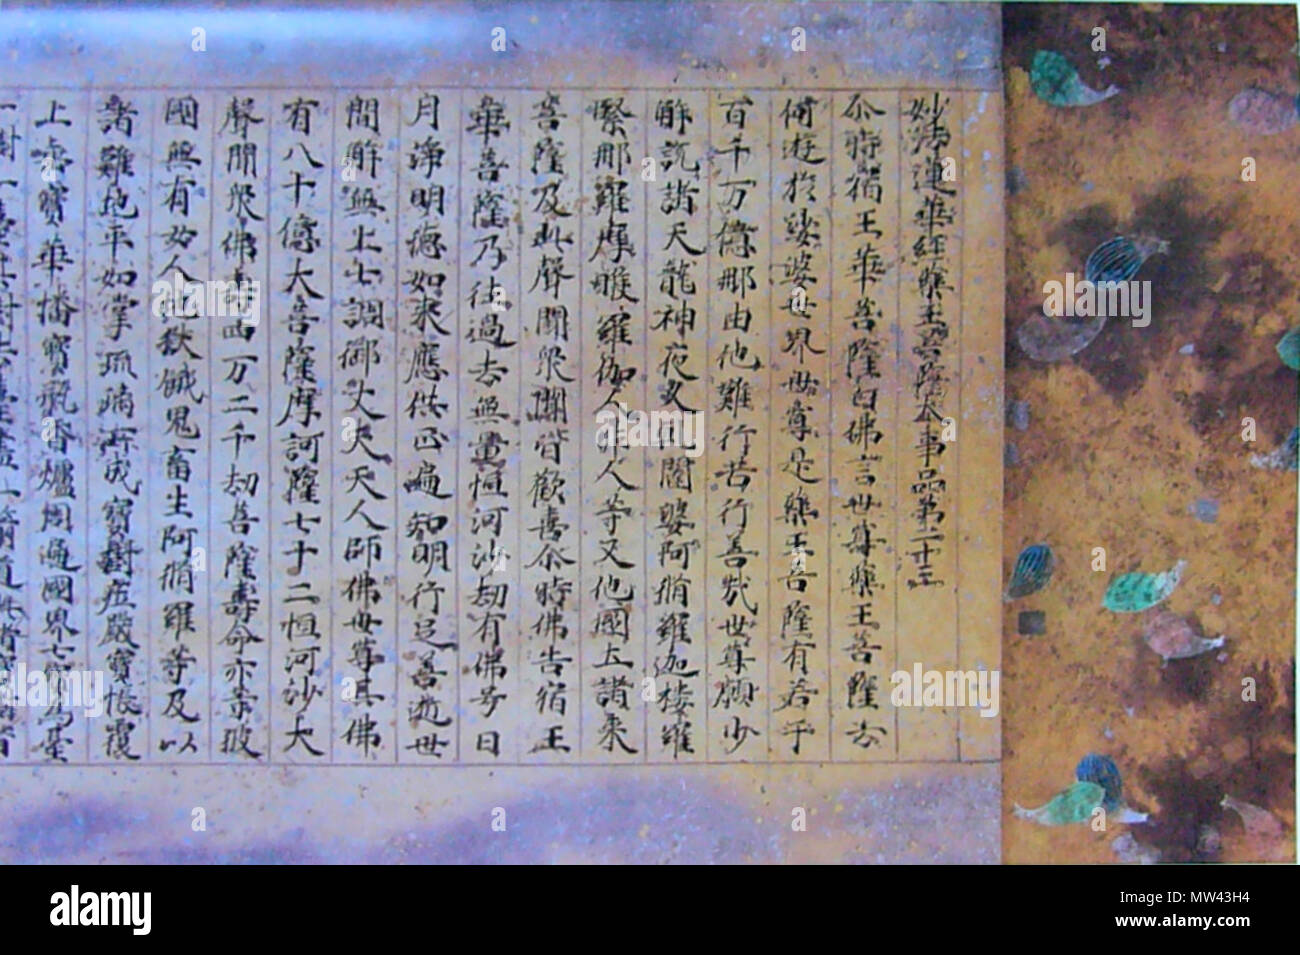 妙法蓮華經藥王菩薩本事品第二十三
尒時宿王華菩薩白佛言世尊藥王菩薩云
何遊於娑婆世界世尊是藥王菩薩有若干
百千万億那由他難行苦行善哉世尊願少
解說諸天龍神夜叉乹闥婆阿脩羅迦樓羅
緊那羅摩睺羅伽人非人等又他國土諸來
菩薩及此聲聞眾聞皆歡喜尒時佛告宿王
華菩薩乃往過去無量恒河沙劫有佛号日
月淨明德如來應供正遍知明行足善逝世
間解無上士調御丈夫天人師佛世尊其佛
有八十億大菩薩摩訶薩七十二恒河沙大
聲聞眾佛壽四万二千劫菩薩壽命亦等彼
國無有女人地獄餓鬼畜生阿脩羅等及以
諸難地平如掌琉璃所成寶樹莊嚴寶帳覆
上垂寶華幡寶瓶香爐周遍國界七寶為臺
一樹一臺其樹去臺盡一箭道此諸
alamy
Image ID: MW43H4
www.alamy.com